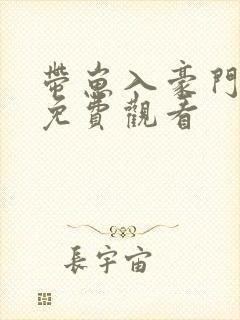 帶崽入豪門
免費觀看
長宇宙